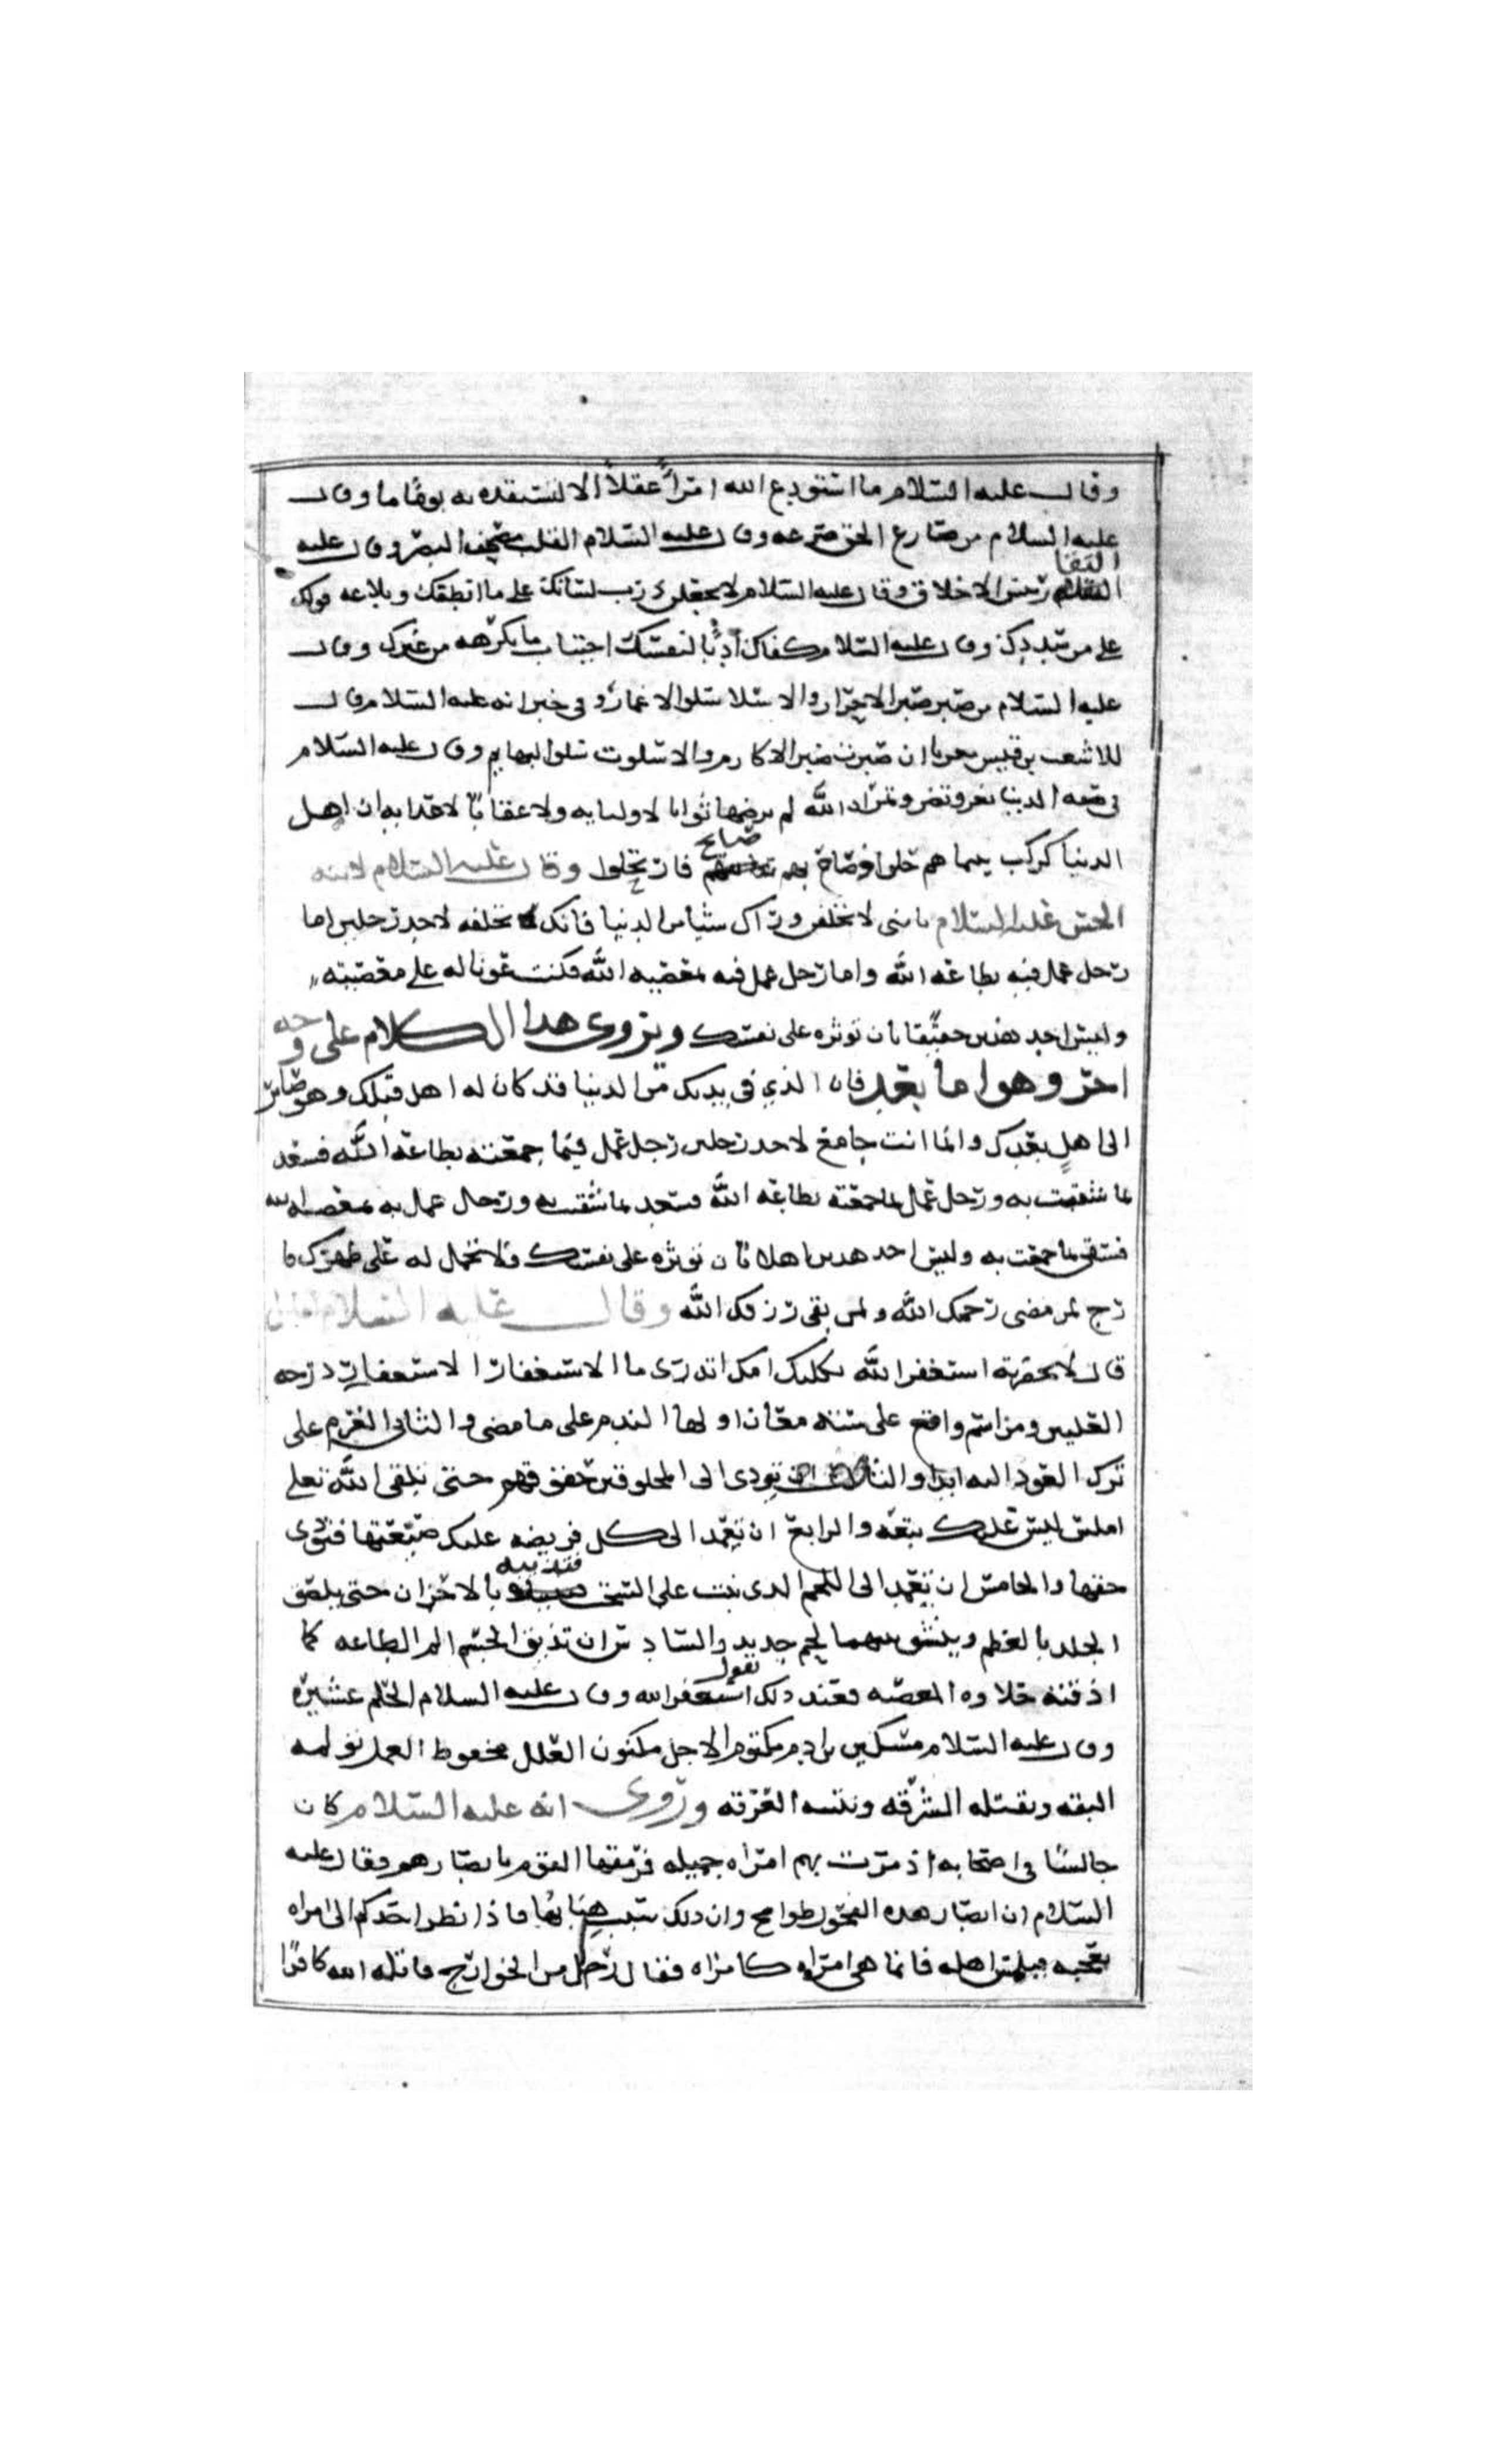 وقال عليه السلام ما استودع الله امرأً عقلاً الا ليستنقذه به يومًا ما وقال
عليه السلام من صارع الحق صرعه وقال عليه السلام القلب مصحف البصر وقال عليه
التقا
السلام رئيس الاخلاق وقال عليه السلام لا تجعلن ذرب لسانك على ما انطقك وبلاغه قولك
على من سددك وقال عليه السلام كفاك أدبًا لنفسك اجتناب ما تكرهه من غيرك وقال
عليه السلام من صبر صبر الاحرار والا سلا سلو الاغمار وفي خبر انه عليه السلام قال
للاشعث بن قيس معزيا ان صبرت صبر الاكارم والا سلوت سلو البهايم وقال عليه السلام
في صفه الدنيا تغر وتضر وتمر ان الله لم يرضها ثوابا لاوليايه ولا عقابًا لاعدايه ان اهل
الدنيا كركب بينما هم حلوا اذ صاح بهم فارتحلوا وقال عليه السلام لابنه
صايح
الحسن عليه السلام يا بني لا تخلفن وراك شيا من الدنيا فانك تخلفه لاحد رجلين اما
رجل عمل فيه بطاعه الله واما رجل عمل فيه بمعصيه الله فكنت عونا له على معصيته
وليس احد هذين حقيقا بان توثره على نفسك ويروى هذا الكلام على وجه
اخر وهو اما بعد فان الذي في يدك من الدنيا قد كان له اهل قبلك وهو صاير
الى اهل بعدك وانما انت جامع لاحد رجلين رجل عمل فيما جمعته بطاعه الله فسعد
بما شقيت به ورجل عمل بما جمعته بطاعه الله فسعد بما شقيت به ورجل عمل به بمعصيه الله
فشقي بما جمعت به وليس احد هذين باهلا بان توثره على نفسك ولا تحمل له على ظهرك فا
رج لمن مضى رحمك الله ولمن بقى رزقك الله وقال عليه السلام لقايل
قال لا بحضرته استغفر الله ثكلتك امك اتدرى ما الاستغفار الاستغفار درجه
العليين ومن اسم واقع على سته معان اولها الندم على ما مضى والثاني العزم على
ترك العود اليه ابدا والثالث ان تودى الى المخلوقين حقوقهم حتى تلقى الله تعلى
املس ليس عليك تبعه والرابع ان تعمد الى كل فريضه عليك ضيعتها فتودى
حقها والخامس ان تعمد الى اللحم الذى نبت على السحت فتذيبه بالاحزان حتى يلصق
الجلد بالعظم وينشو بينهما لحم جديد والسادس ان تذيق الجسم الم الطاعه كما
اذقته حلاوه المعصيه فعند ذلك تقول استغفر الله وقال عليه السلام الحلم عشيره
وقال عليه السلام مسكين بن ادم مكتوم الاجل مكنون العلل محفوظ العمل تولمه
البقه وتقتله الشرقه وتنتنه العرقه وروى انه عليه السلام كان
جالسًا في اصحابه اذ مرت بهم امراه جميله فرمقها القوم بابصارهم فقال عليه
السلام ان ابصار هذه الفحول طوامح وان ذلك سبب هبابها فاذا نظر احدكم الى امراه
تعجبه فيلمس اهله فانما هى امراه كامراه فقال رجل من الخوارج قاتله الله كافرًا